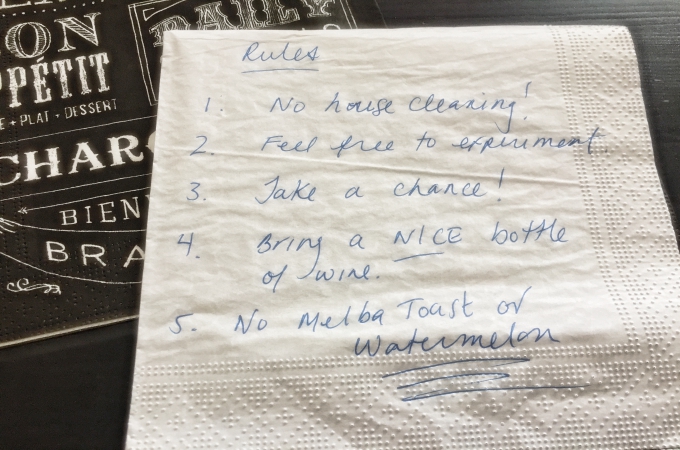 ON
DAILY
PÉTIT
E • PLAT • DESSERT
CHAR
BIEN
BRA
Rules
1. No house cleaning!
2. Feel free to experiment
3. Take a chance!
4. Bring a NICE bottle
of wine.
5. No Melba Toast or
Watermelon